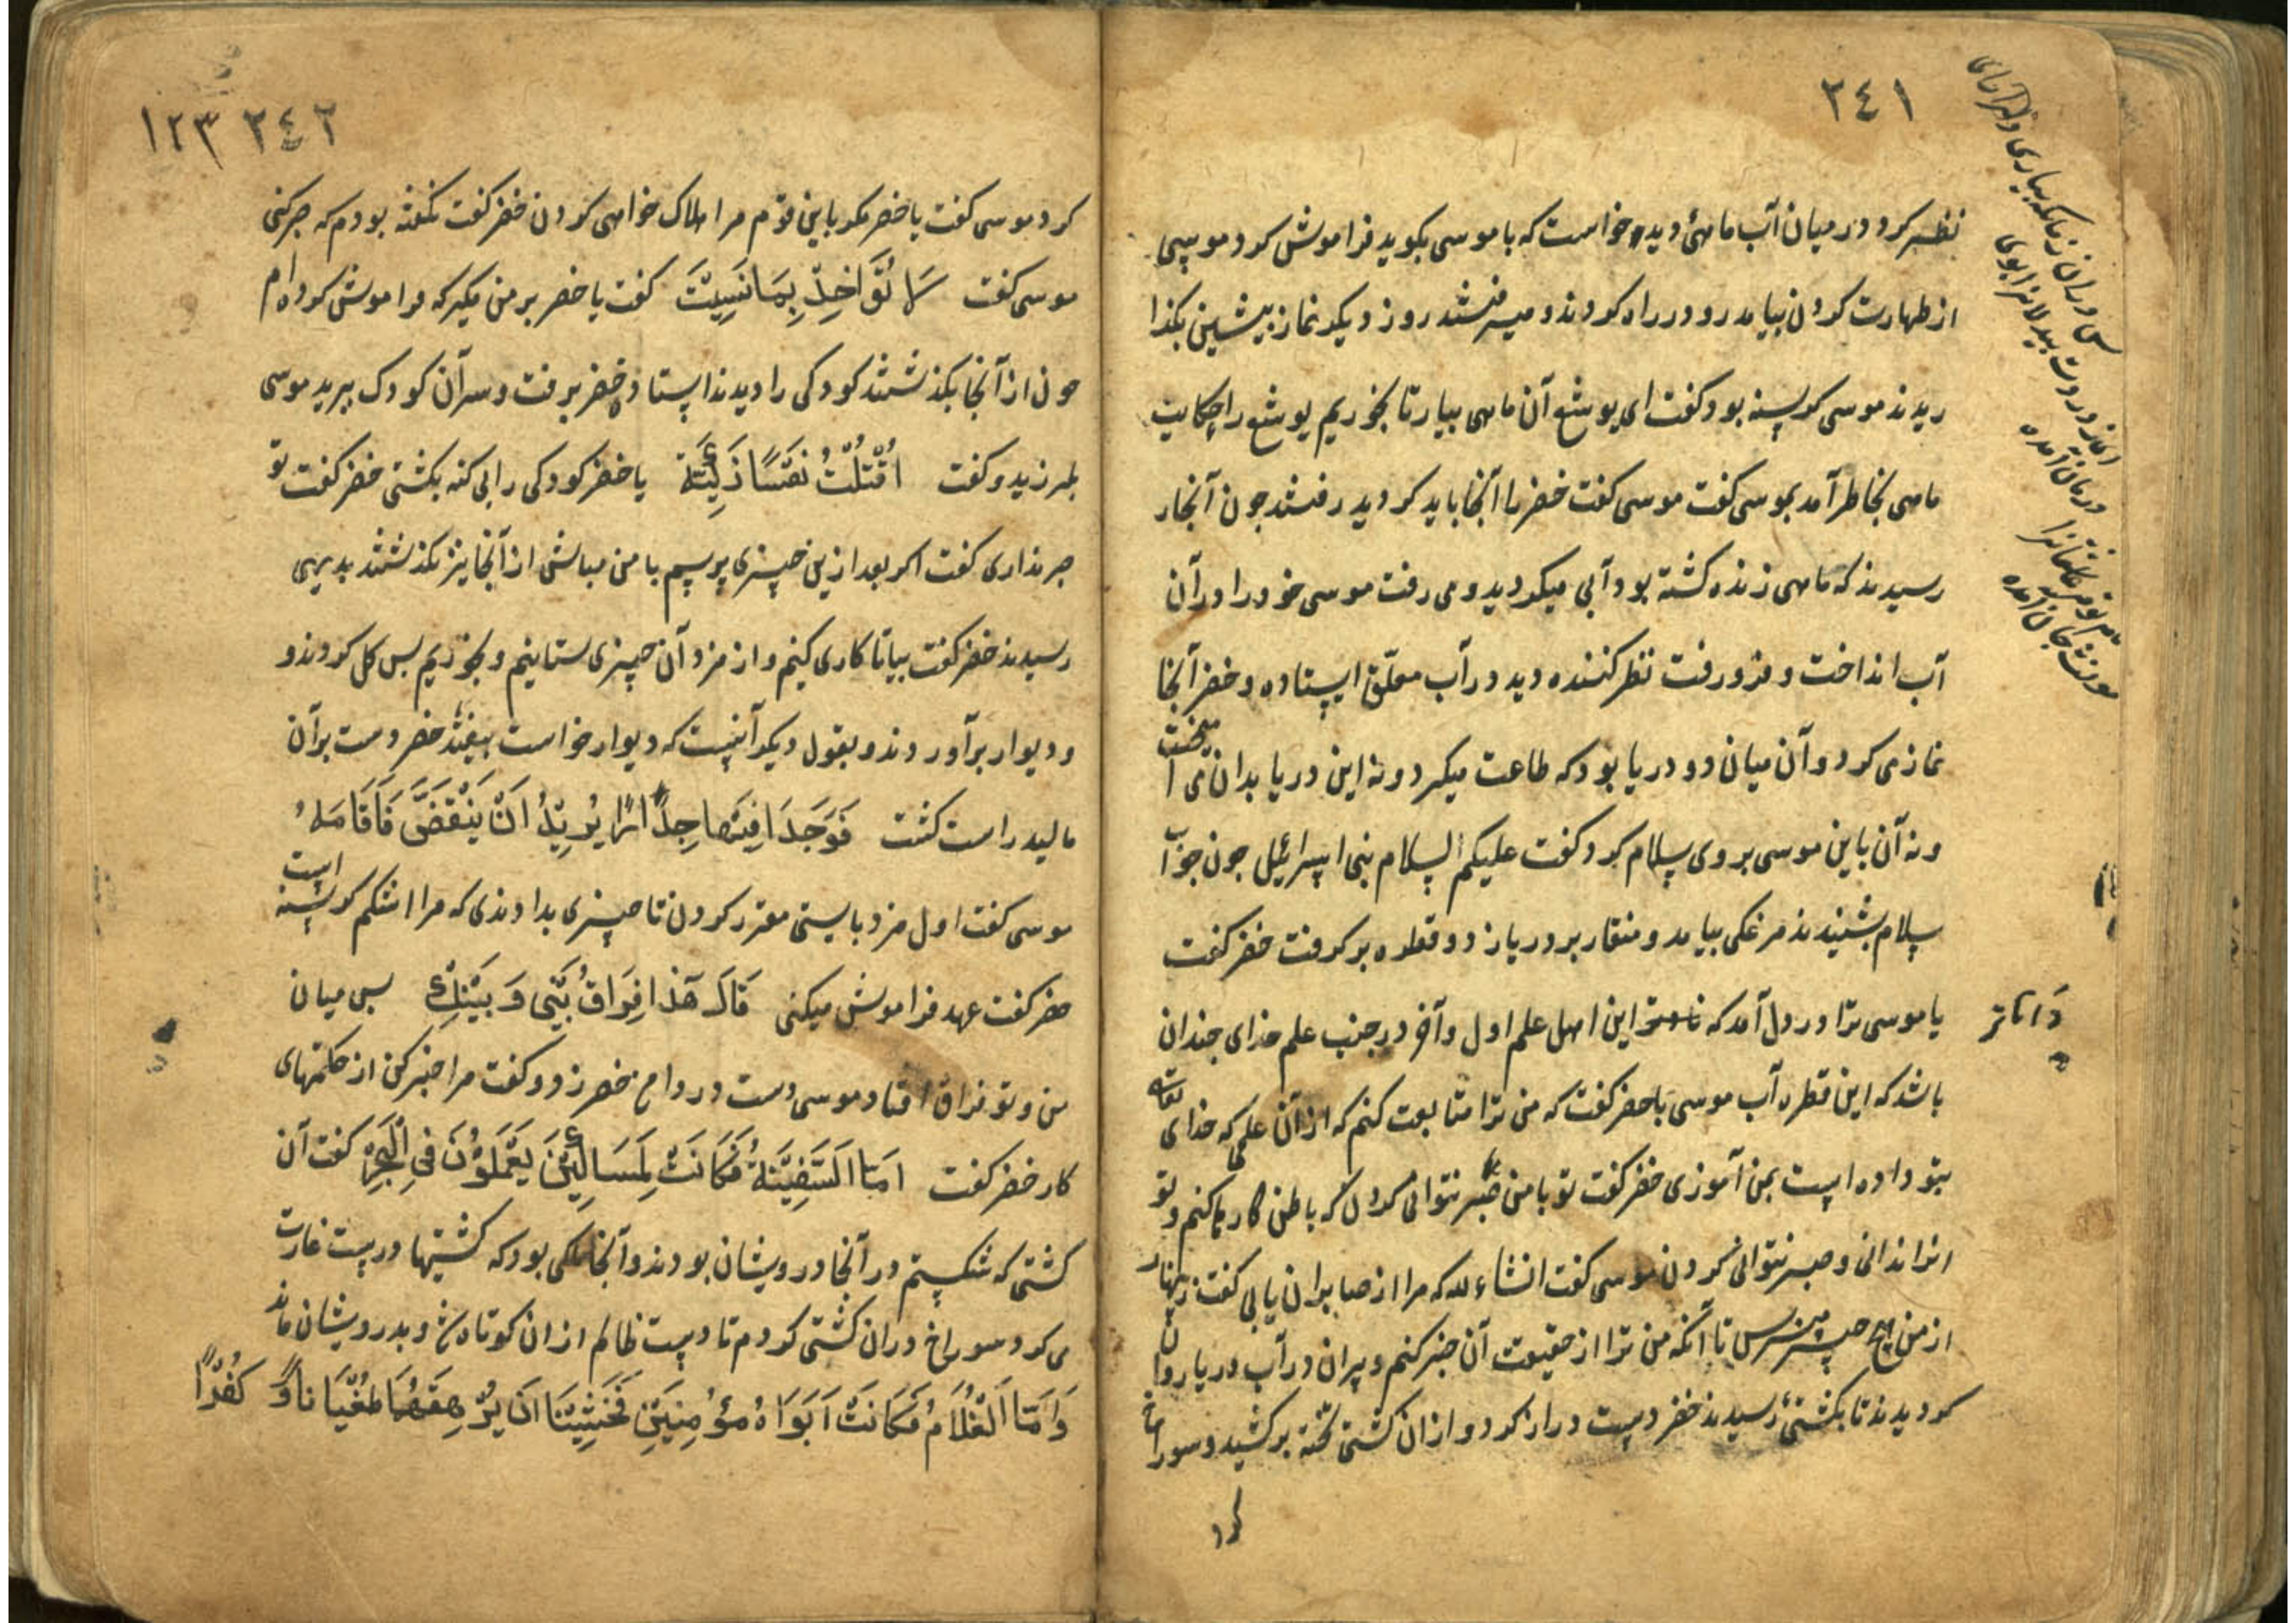 ٢٤١
نظر کرد در میان آب ماهئ دید و خواست که با موسی بکوید فراموش کرد موسی
از طهارت کردن بیامد رو در راه کردند و میرفتند روز دیکر نماز پیشین بکذا
ریدند موسی کرسنه بود کفت ای یوشع آن ماهی بیار تا بخوریم یوشع را حکایت
ماهی بخاطر آمد بموسی کفت موسی کفت خضر ما آنجا باید کردید رفتند جون آنجار
رسیدند که ماهی زنده کشته بود آبی میکردید و می رفت موسی خود را در آن
آب انداخت و فرو رفت نظر کننده دید در آب معلّق ایستاده و خضر آنجا
نماز می کرد و آن میان دو دریا بود که طاعت میکرد و نه این دریا بدان می آمیخت
و نه آن باین موسی بر وی سلام کرد کفت علیکم السلام بنی اسرائیل جون جواب
سلام بشنیدند مرغکی بیامد و منقار بر دریا زد و قطره بر کرفت خضر کفت
یا موسی ترا در دل آمد که داناتر این اهل علم اول و آخر در جنب علم خدای جندان
باشد که این قطره آب موسی با خضر کفت که من ترا متابعت کنم که از آن علمی که خدای تعالی
بتو داده است بمن آموزی خضر کفت تو با من صبر نتوانی کردن که باطن کارها کنم و تو
انرا ندانی و صبر نتوانی کردن موسی کفت انشاء لله که مرا از صابران یابی کفت زینهار
از من هیچ چیز مپرس تا آنکه من ترا از حقیقت آن خبر کنم و پران در آب دریا روان
کردیدند تا بکشتی رسیدند خضر دست دراز کرد و از ان کشتی تخته بر کشید و سوراخ
کرد
داناتر
١٢٣ ٢٤٢
کرد موسی کفت یا خضر مکر باین قوم مرا هلاک خواهی کردن خضر کفت نکفته بودم که صبر کنی
موسی کفت لَا تُؤَاخِذْنِی بِمَا نَسِیتُ کفت یا خضر بر من مکیر که فراموش کرده ام
جون از آنجا بکذشتند کودکی را دیدند ایستاده خضر برفت و سر آن کودک ببرید موسی
بلرزید و کفت اَقَتَلْتَ نَفْسًا زَکِیَّةً یا خضر کودکی را بی کنه بکشتی خضر کفت تو
صبر نداری کفت اکر بعد ازین چیزی پرسم با من مباش از آنجا نیز بکذشتند بدیهی
رسیدند خضر کفت بیا تا کاری کنیم و از مزد آن چیزی ستانیم و بخوریم بس کل کردند و
و دیوار برآوردند و بقول دیکر آنست که دیوار خواست بیفتد خضر دست بر آن
مالید راست کشت فَوَجَدَا فِیهَا جِدَارًا یُرِیدُ اَنْ یَنْقَضَّ فَاَقَامَهُ
موسی کفت اول مزد بایستی مقرر کردن تا چیزی بدادندی که مرا اشکم کرسنه است
خضر کفت عهد فراموش میکنی قَالَ هَذَا فِرَاقُ بَیْنِی وَ بَیْنِکَ بس میان
من و تو فراق افتاد موسی دست در دامن خضر زد و کفت مرا خبر کن از حکمتهای
کار خضر کفت اَمَّا السَّفِینَةُ فَکَانَتْ لِمَسَاکِینَ یَعْمَلُونَ فِی الْبَحْرِ کفت آن
کشتی که شکستم در آنجا درویشان بودند و آنجا ملکی بود که کشتیها درست غارت
می کرد سوراخ دران کشتی کردم تا دست ظالم از ان کوتاه شود و بدرویشان ماند
وَ اَمَّا الْغُلَامُ فَکَانَتْ اَبَوَاهُ مُؤْمِنَیْنِ فَخَشِینَا اَنْ یُرْهِقَهُمَا طُغْیَانًا وَ کُفْرًا